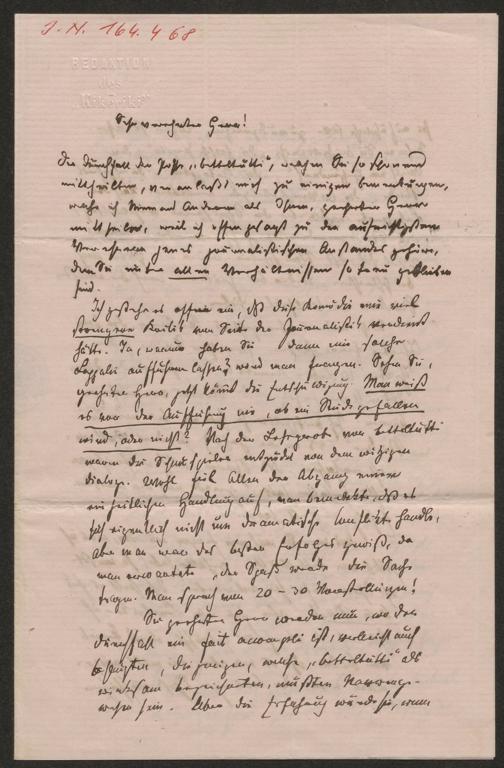 J. N. 164.468
REDAKTION
des
"Kikeriki"
Sehr verehrter Herr!
Der Durchfall der Posse "Betteltutti", welchen Sie so schonend
mittheilten, veranlaßt mich zu einigen Bemerkungen,
welche ich Niemand Anderem als Ihnen, geehrter Herr
mittheile, weil ich offen gesagt zu den aufrichtigsten
Verehrern jenes journalistischen Anstandes gehöre,
dem Sie unter allen Verhältnissen so treu geblieben
sind.
Ich gestehe es offen ein, daß diese Komödie eine viel
strengere Kritik von Seite der Journalistik verdient
hätte. Ja, warum haben Sie denn eine solche
aufführen lassen? wird man fragen. Sehen Sie,
geehrter Herr, jetzt kömt die Entschuldigung. Man weiß
es vor der Aufführung nie, ob ein Stück gefallen
wird, oder nicht! Nach der Leseprobe von Betteltutti
waren die Schauspieler entzückt von dem witzigen
Dialoge. Wohl fiel Allen der Abgang einer
einheitlichen Handlung auf, man bemerkte, daß es
sich eigentlich nicht um dramatische Conflikte handle,
aber man war des besten Erfolges gewiß, da
man erwartete, der Spaß werde die Sache
tragen. Man sprach von 20 – 30 Vorstellungen!
Sie geehrter Herr werden nun, wo der
Durchfall ein fait accompli ist, vielleicht auch
behaupten, diejenigen, welche "Betteltutti" als
wirksam bezeichneten, müßten Narren
sein. Aber die Erfahrung würde Sie, wenn